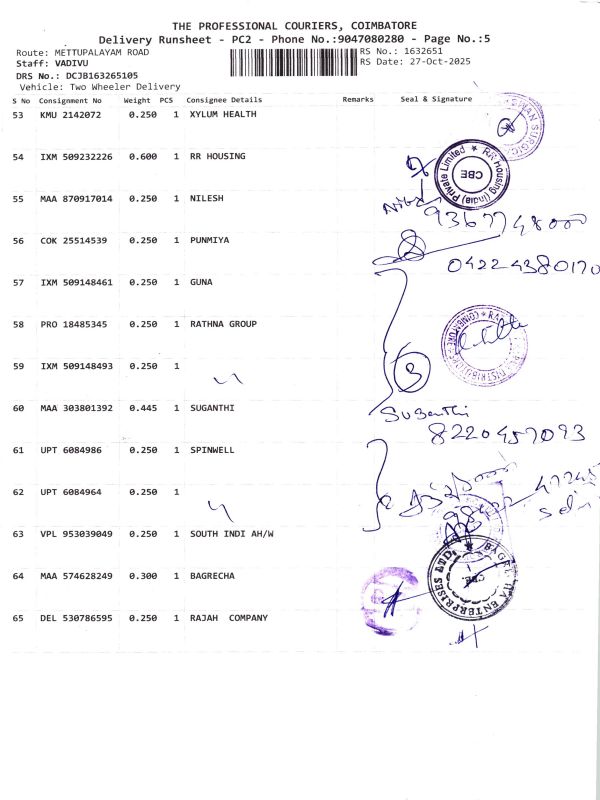 THE PROFESSIONAL COURIERS, COIMBATORE
Delivery Runsheet - PC2 - Phone No.:9047080280 - Page No.:5
Route: METTUPALAYAM ROAD RS No.: 1632651
Staff: VADIVU RS Date: 27-Oct-2025
DRS No.: DCJB163265105
Vehicle: Two Wheeler Delivery
S No Consignment No Weight PCS Consignee Details Remarks Seal & Signature
53 KMU 2142072 0.250 1 XYLUM HEALTH
54 IXM 509232226 0.600 1 RR HOUSING
RR Housing (India) Private Limited
CBE
55 MAA 870917014 0.250 1 NILESH
9367748000
56 COK 25514539 0.250 1 PUNMIYA
0422 4380170
57 IXM 509148461 0.250 1 GUNA
58 PRO 18485345 0.250 1 RATHNA GROUP
59 IXM 509148493 0.250 1
3
60 MAA 303801392 0.445 1 SUGANTHI
Suganthi
8220457093
61 UPT 6084986 0.250 1 SPINWELL
62 UPT 6084964 0.250 1
63 VPL 953039049 0.250 1 SOUTH INDI AH/W
64 MAA 574628249 0.300 1 BAGRECHA
BAGRECHA ENTERPRISES LTD.
CBE.
65 DEL 530786595 0.250 1 RAJAH COMPANY